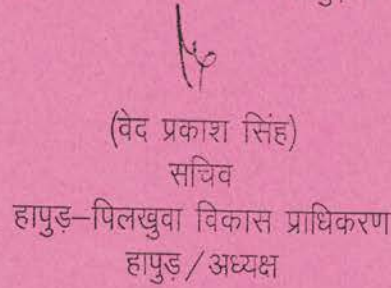 (वेद प्रकाश सिंह)
सचिव
हापुड़–पिलखुवा विकास प्राधिकरण
हापुड़/अध्यक्ष